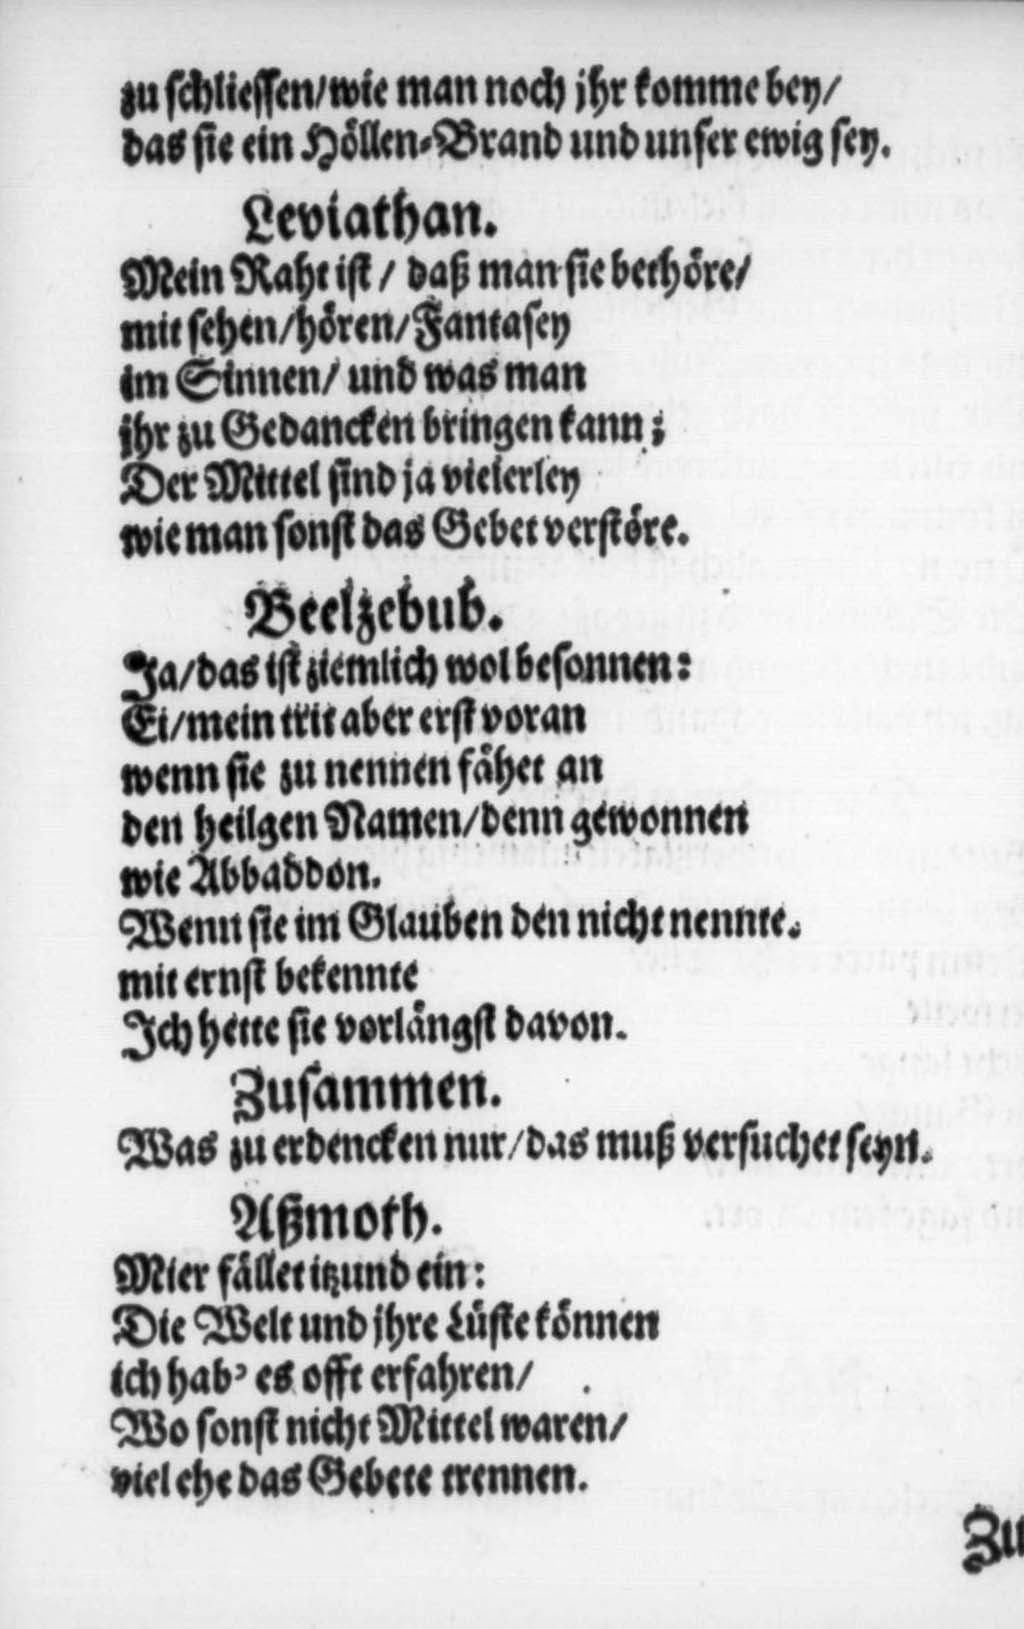 zu schliessen/wie man noch jhr komme bey/
das sie ein Höllen-Brand und unser ewig sey.
Leviathan.
Mein Raht ist / daß man sie bethöre/
mit sehen/hören/Fantasey
im Sinnen/ und was man
jhr zu Gedancken bringen kann;
Der Mittel sind ja vielerley
wie man sonst das Gebet verstöre.
Beelzebub.
Ja/das ist ziemlich wol besonnen:
Ei/mein trit aber erst voran
wenn sie zu nennen fähet an
den heilgen Namen/denn gewonnen
wie Abbaddon.
Wenn sie im Glauben den nicht nennte.
mit ernst bekennte
Ich hette sie vorlängst davon.
Zusammen.
Was zu erdencken nur/das muß versuchet seyn.
Aßmoth.
Mier fället itzund ein:
Die Welt und jhre Lüste können
ich hab' es offt erfahren/
Wo sonst nicht Mittel waren/
viel ehe das Gebete trennen.
Zu